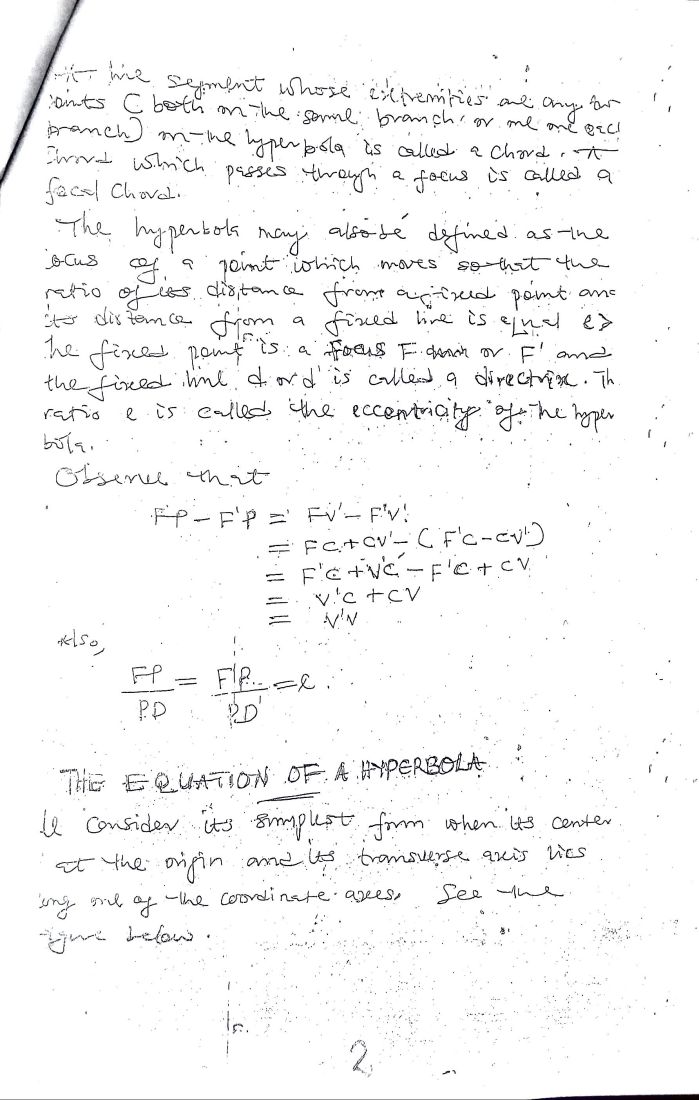 A line segment whose extremities are any two
oints (both on the same branch or one on each
branch) on the hyperbola is called a chord. A
Chord which passes through a focus is called a
focal Chord.
The hyperbola may also be defined as the
ocus of a point which moves so that the
ratio of its distance from a fixed point and
its distance from a fixed line is equal e>
he fixed point is a Focus F or F' and
the fixed line d or d' is called a directrix. Th
ratio e is called the eccentricity of the hyper
bola.
Observe that
FP - F'P = FV' - F'V'
= FC + CV' - (F'C - CV')
= F'C + V'C - F'C + CV
= V'C + CV
= V'V
Also,
FP/PD = F'P/PD' = e.
THE EQUATION OF A HYPERBOLA
consider its simplest form when its center
at the origin and its transverse axis lies
ong one of the coordinate axes. See the
igure below.
2